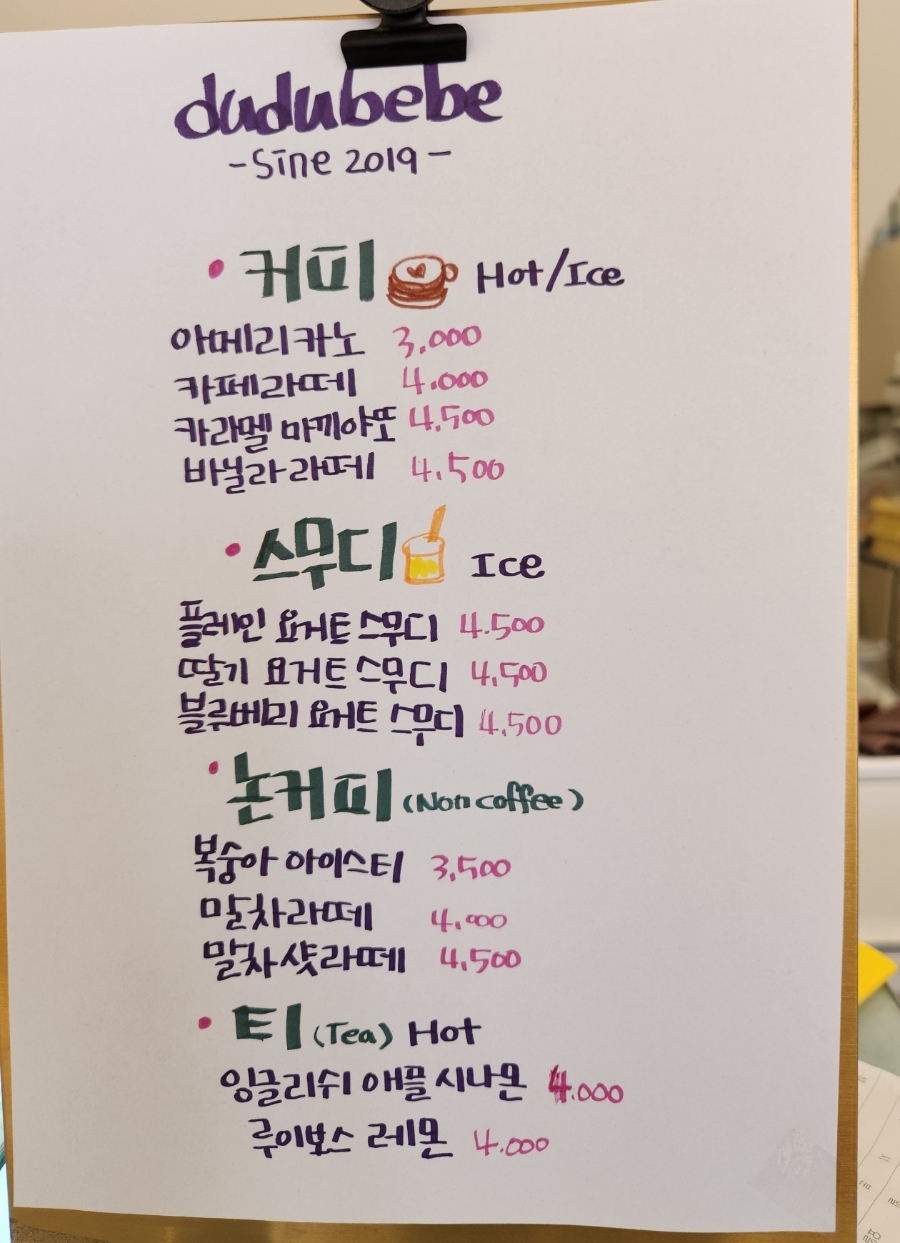 dudubebe
-Sine 2019-
• 커피 Hot/Ice
아메리카노 3,000
카페라떼 4.000
카라멜 마끼야또 4,500
바닐라 라떼 4,500
• 스무디 Ice
플레인 요거트 스무디 4.500
딸기 요거트 스무디 4,500
블루베리 요거트 스무디 4.500
• 논커피 (Non coffee)
복숭아 아이스티 3,500
말차라떼 4,000
말차샷라떼 4,500
• 티 (Tea) Hot
잉글리쉬 애플 시나몬 4.000
루이보스 레몬 4.000